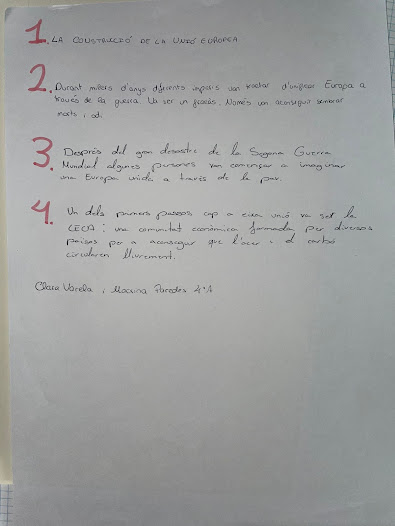 1. LA CONSTRUCCIÓ DE LA UNIÓ EUROPEA
2. Durant milers d'anys diferents imperis van tractar d'unificar Europa a
través de la guerra. Va ser un fracàs. Només van aconseguir sembrar
morts i odi.
3. Després del gran desastre de la Segona Guerra
Mundial algunes persones van començar a imaginar
una Europa unida a través de la pau.
4. Un dels primers passos cap a eixa unió va ser la
CECA: una comunitat econòmica formada per diversos
països per a aconseguir que l'acer i el carbó
circularen lliurement.
Clara Varela i Paredes 4ºA